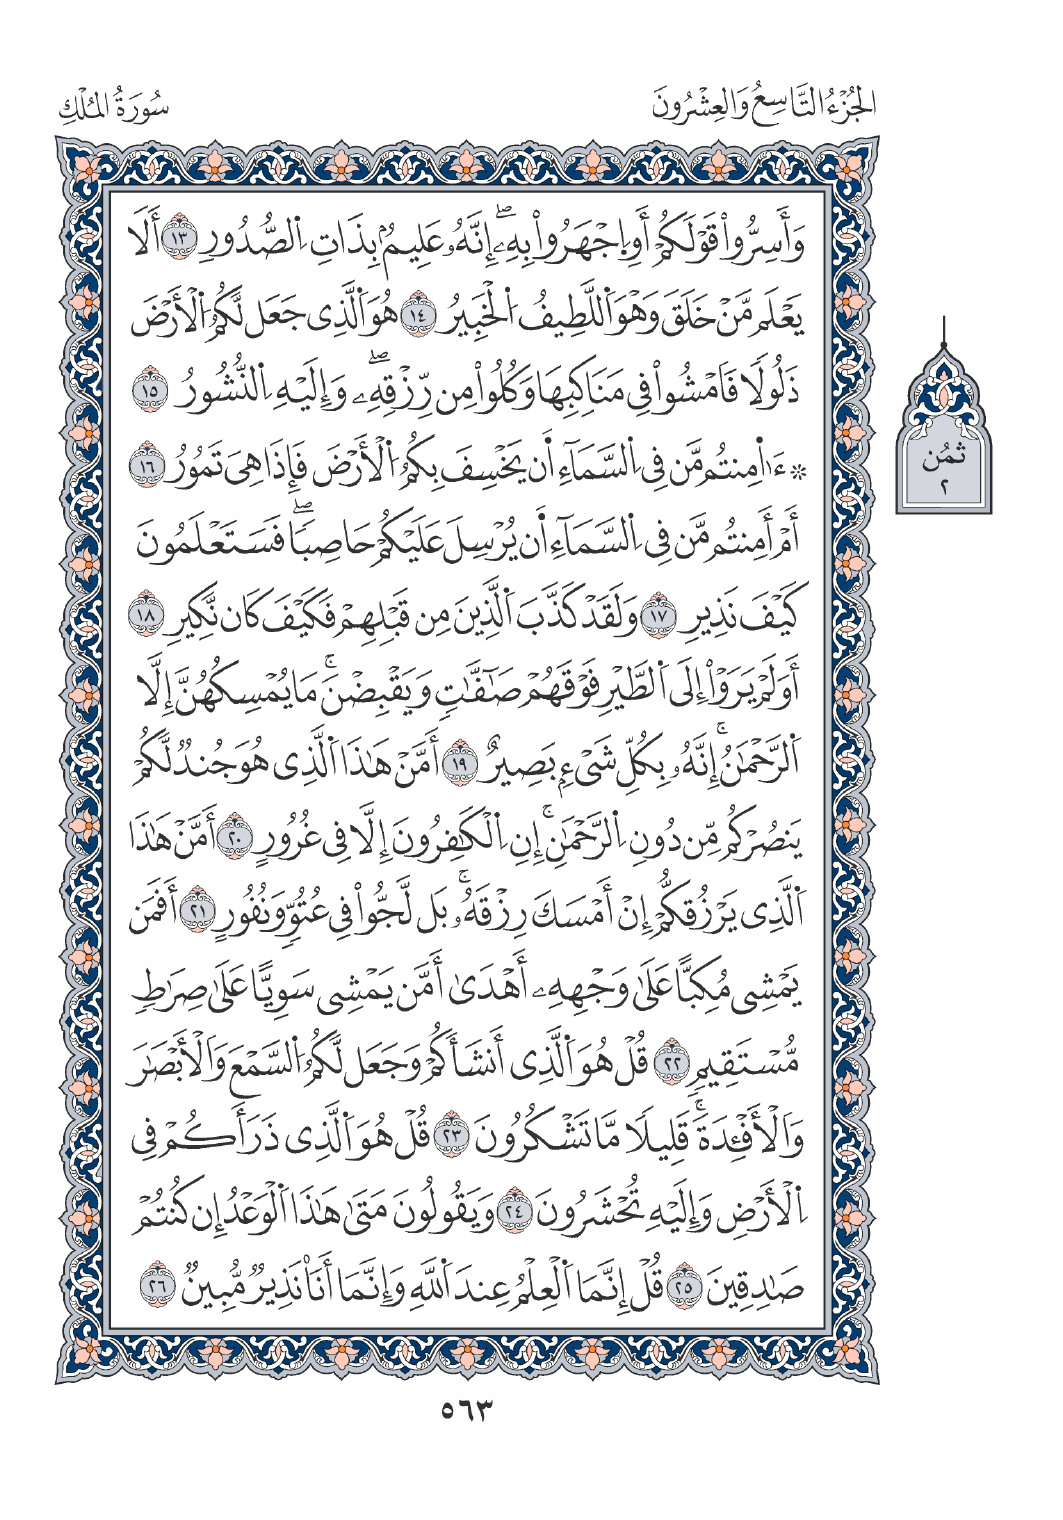 الجُزْءُ التَّاسِعُ وَالعِشْرُونَ
سُورَةُ المُلْكِ
وَأَسِرُّواْ قَوْلَكُمْ أَوِ اِ۪جْهَرُواْ بِهِۦٓۖ إِنَّهُۥ عَلِيمُۢ بِذَاتِ اِ۬لصُّدُورِ ١٣ أَلَا
يَعْلَم مَّنْ خَلَقَ وَهْوَ اَ۬للَّطِيفُ اُ۬لْخَبِيرُ ١٤ هُوَ اَ۬لَّذِى جَعَل لَّكُمُ اُ۬لْأَرْضَ
ذَلُولًا فَامْشُواْ فِى مَنَاكِبِهَا وَكُلُواْ مِن رِّزْقِهِۦۖ وَإِلَيْهِ اِ۬لنُّشُورُ ١٥
۞ ءَا۬مِنتُم مَّن فِى اِ۬لسَّمَآءِ اَ۬ن يَخْسِفَ بِكُمُ اُ۬لْأَرْضَ فَإِذَا هِىَ تَمُورُ ١٦
أَمْ أَمِنتُم مَّن فِى اِ۬لسَّمَآءِ اَ۬ن يُرْسِلَ عَلَيْكُمْ حَاصِبًاۖ فَسَتَعْلَمُونَ
كَيْفَ نَذِيرِ ١٧ وَلَقَدْ كَذَّبَ اَ۬لَّذِينَ مِن قَبْلِهِمْ فَكَيْفَ كَان نَّكِيرِ ١٨
أَوَلَمْ يَرَوْاْ إِلَى اَ۬لطَّيْرِ فَوْقَهُمْ صَٰٓفَّٰتٍ وَيَقْبِضْنَۚ مَا يُمْسِكُهُنَّ إِلَّا
اَ۬لرَّحْمَٰنُۚ إِنَّهُۥ بِكُلِّ شَىْءِۭ بَصِيرٌ ١٩ أَمَّنْ هَٰذَا اَ۬لَّذِى هُوَ جُندٌ لَّكُمْ
يَنصُرْكُم مِّن دُونِ اِ۬لرَّحْمَٰنِۚ إِنِ اِ۬لْكَٰفِرُونَ إِلَّا فِى غُرُورٍ ٢٠ أَمَّنْ هَٰذَا
اَ۬لَّذِى يَرْزُقكُّمْ إِنْ أَمْسَكَ رِزْقَهُۥۚ بَل لَّجُّواْ فِى عُتُوٍّ وَنُفُورٍ ٢١ أَفَمَن
يَمْشِى مُكِبًّا عَلَىٰ وَجْهِهِۦ أَهْدَىٰ أَمَّن يَمْشِى سَوِيًّا عَلَىٰ صِرَٰطٍ
مُّسْتَقِيمٍ ٢٢ قُلْ هُوَ اَ۬لَّذِى أَنشَأَكُمْ وَجَعَل لَّكُمُ اُ۬لسَّمْعَ وَالْأَبْصَٰرَ
وَالْأَفْـِٔدَةَۚ قَلِيلًا مَّا تَشْكُرُونَ ٢٣ قُلْ هُوَ اَ۬لَّذِى ذَرَأَكُمْ فِى
اِ۬لْأَرْضِ وَإِلَيْهِ تُحْشَرُونَ ٢٤ وَيَقُولُونَ مَتَىٰ هَٰذَا اَ۬لْوَعْدُ إِن كُنتُمْ
صَٰدِقِينَ ٢٥ قُلْ إِنَّمَا اَ۬لْعِلْمُ عِندَ اَ۬للَّهِ وَإِنَّمَا أَنَا۠ نَذِيرٌ مُّبِينٌ ٢٦
ثمُن
٢
٥٦٣